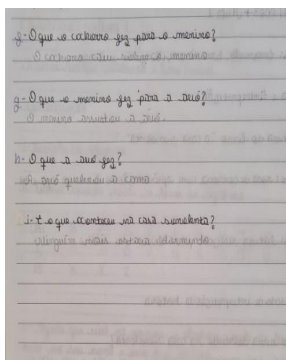 f- O que o cachorro fez para o menino?
O cachorro
o menino
g- O que o menino fez para a avó?
O menino assustou a avó.
h- O que a avó fez?
A avó quebrou a cama
i- E o que aconteceu na casa sonolenta?
ninguém mais estava dormindo